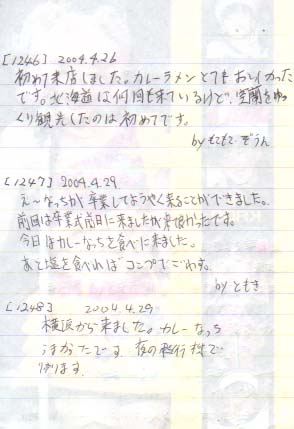 [1246] 2004.4.26
初めて来店しました。カレーラメンとてもおいしかった
です。北海道は何回も来ているけど、室蘭をゆっ
くり観光したのは初めてです。
by もこもこ・ぞうん
[1247] 2004.4.29
え〜なっちが卒業してようやく来ることができました。
前回は卒業式前日に来ましたが来て良かったです。
今日はカレーなっちを食べに来ました。
あと塩を食べればコンプでござる。
by ともき
[1248] 2004.4.29
横浜から来ました。カレーなっち
うまかったです 夜の飛行機で